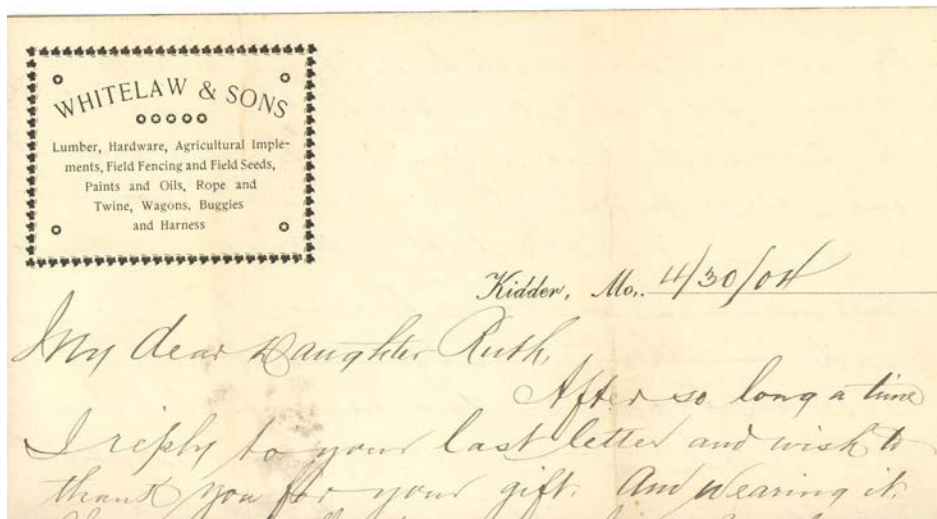 WHITELAW & SONS
Lumber, Hardware, Agricultural Imple-
ments, Field Fencing and Field Seeds,
Paints and Oils, Rope and
Twine, Wagons, Buggies
and Harness
Kidder, Mo., 4/30/04
My dear Daughter Ruth,
After so long a time
I reply to your last letter and wish to
thank you for your gift. Am wearing it.